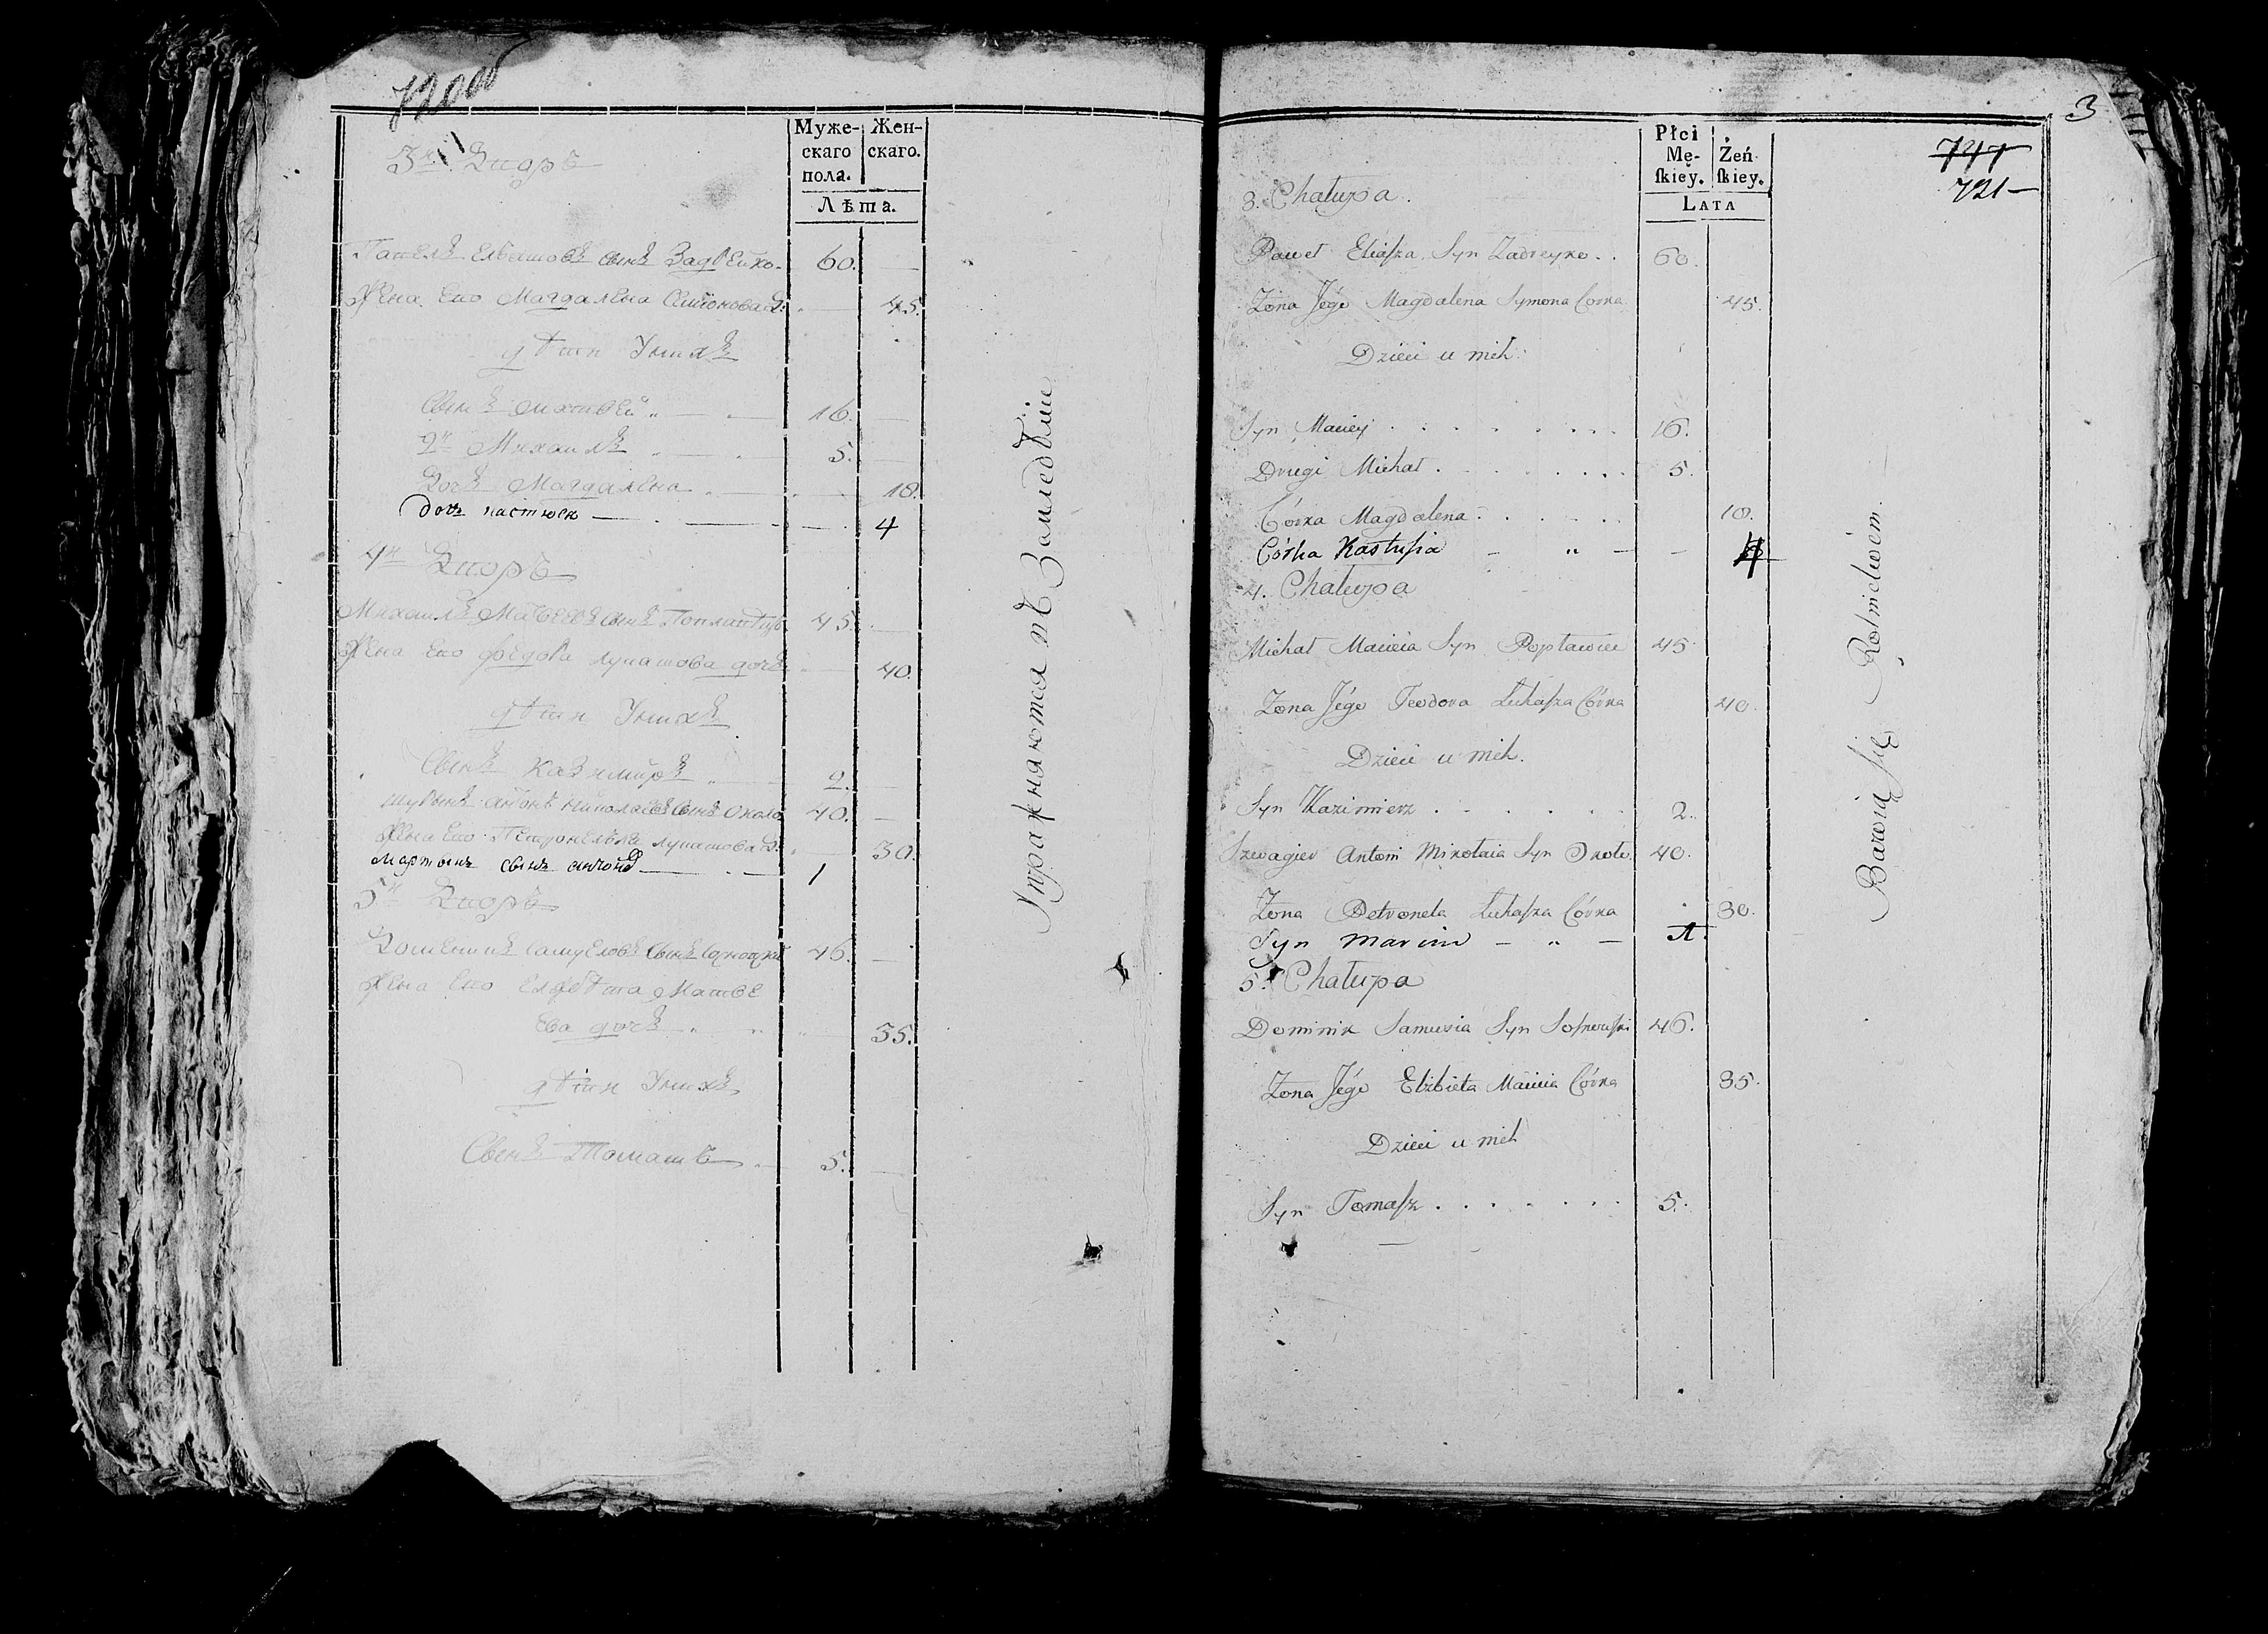 720 об
Муже-
скаго
пола.
Жен-
скаго.
Лѣта.
3й Дворъ
Павелъ Ельяшовъ сынъ Задрейко. 60.
Жена Его Магдалена Симонова Д: 45.
дѣти Унихъ
Сынъ Матвей 16.
2й Михаилъ 5.
Дочь Магдалена 10.
дочь настюся 4
4й Дворъ
Михаилъ Мацеевъ сынъ 45.
Жена Его федора лукашова дочь 40.
дѣти Унихъ
Сынъ Казимиръ 2.
шурынъ Антонъ Николаевъ сынъ Около 40.
Жена Его Петронелька лукашова Д: 30.
Мартынъ сынъ антона 1
5й Дворъ
Доминикъ Самуеловъ сынъ 46.
Жена Его Елжбѣта Матве
Ева дочь 35.
дѣти Унихъ
Сынъ Томашъ 5.
Упражняются въ Замледѣліи
3
747
721
Płci
Mę-
ſkiey.
Żeń
ſkiey.
LATA
3. Chałupa.
Paweł Eliaſza Syn Zadreyko. 60.
Zona Jégo Magdalena Symona Corka 45.
Dzieci u nich.
Syn Maciey 16.
Drugi Michał 5.
Córka Magdalena 10.
Córka Kastuſia 4
4. Chałupa
Michał Macieia Syn Popławiec 45
Zona Jégo Teodora Łukaſza Córka 40.
Dzieci u nich.
Syn Kazimierz 2.
Szwagier Antoni Mikołaia Syn Około. 40.
Zona Petronela Łukaſza Córka 30.
Syn Marcin 1.
5. Chałupa
Dominik Samusia Syn Soſnowſki 46.
Zona Jégo Elżbieta Macieia Córka 35.
Dzieci u nich
Syn Tomaſz 5.
Bawią ſię Rolnictwem.